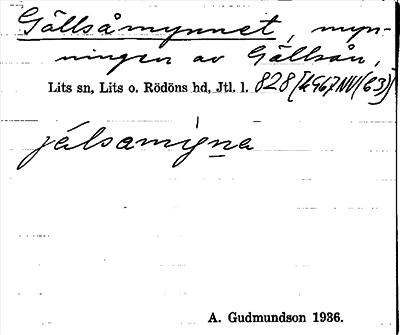 Gällsåmynnet, myn-
ningen av Gällsån,
Lits sn, Lits o. Rödöns hd, Jtl. l. 828
jälsamigna
A. Gudmundson 1936.